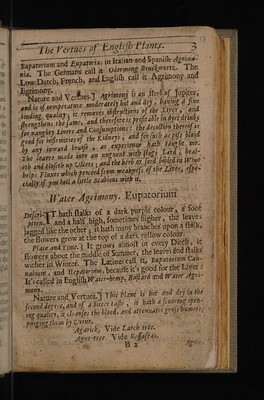 The Vertues of English Plants. 3
Eupatorium and Eupatoria, in Italian and Spanish Agrimo-
nia, The Germans call it Odermeng Bruckwurtz. The
Low-Dutch, French, and English call it Agrimony and
Egrimony.
Nature and Vertues.] Agrimony is an Herb of Jupiter,
and is of temperature moderately hot and dry, having a fine
binding quality; it removes obstructions of the Liver, and
strengthens the same, and therefore is profitable in dyet drinks
for naughty Livers and Consumptions: the decoction thereof is
good for infirmities of the Kidneys, and for such as piss blood
by any inward as experience hath taught me.
The leaves made into an unguent with Hogs Lard, heal-
eth and closeth up Ulcers; and the herb or seed boiled in Wine
helps Fluxes which proceed from weakness of the Liver, espe-
cially if you boil a little with it.
Water Agrimony. Eupatorium.
Descri-] IT hath stalks of a dark purple colour, a foot
ption. and a half high, sometimes higher, the leaves
jagged like the other; it hath many branches upon a stalk,
the flowers grow at the top of a dark yellow colour.
Place and Time.] It grows almost in every Ditch, it
flowers about the middle of Summer, the leaves and stalks
wither in Winter. The Latines call it, Eupatorium Can-
nabium, and Hepatorium, because it's good for the Liver:
It's called in English Water-hemp, Bastard and Water Agri-
mony.
Nature and Vertues.] This plant is hot and dry in the
second degree, and of a bitter taste; it hath a scouring open-
ing quality, it cleanses the blood, and attenuates gross humors,
purging them by Urine.
Agarick, Vide Latch-tree.
Ague-tree Vide Sassafras.
B 2